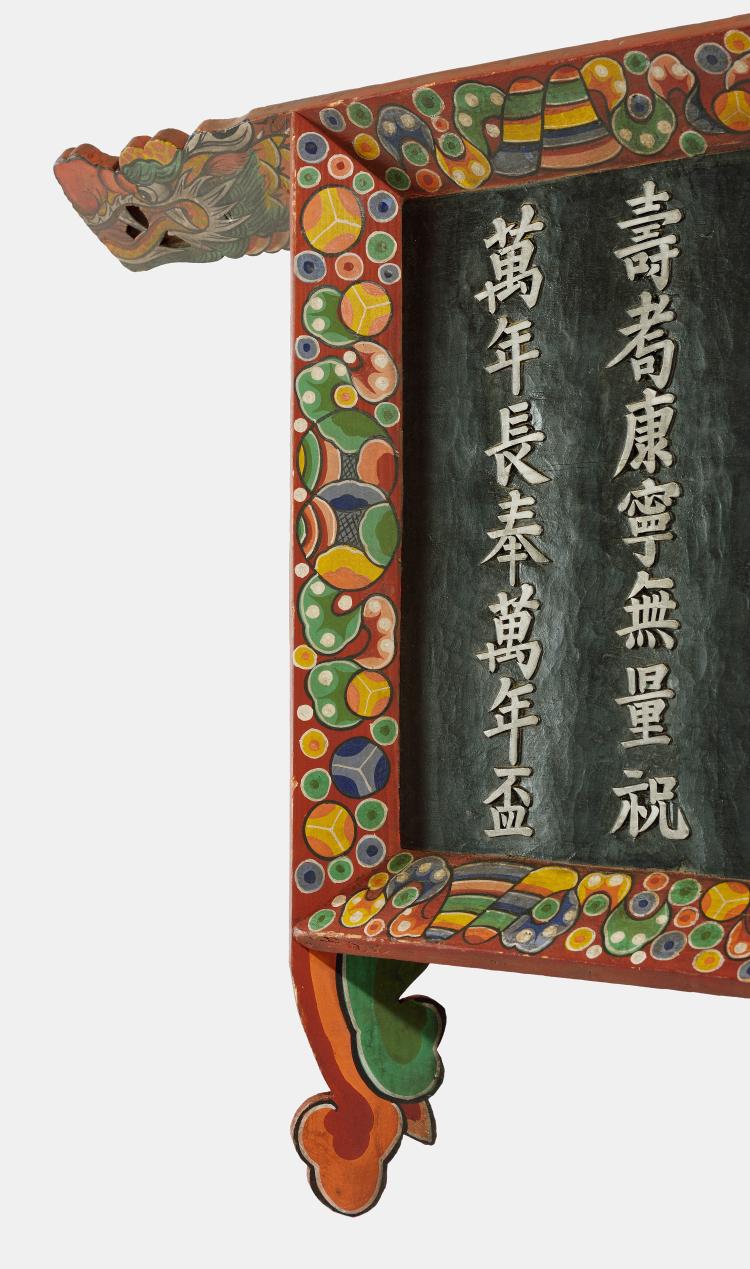 壽耈康寧無量祝
萬年長奉萬年盃